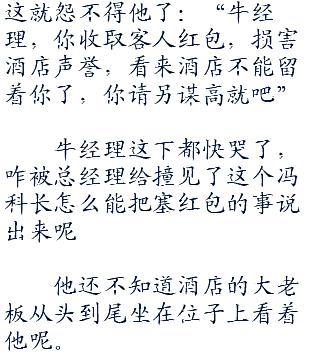 这就怨不得他了：“牛经
理，你收取客人红包，损害
酒店声誉，看来酒店不能留
着你了，你请另谋高就吧”
牛经理这下都快哭了，
咋被总经理给撞见了这个冯
科长怎么能把塞红包的事说
出来呢
他还不知道酒店的大老
板从头到尾坐在位子上看着
他呢。